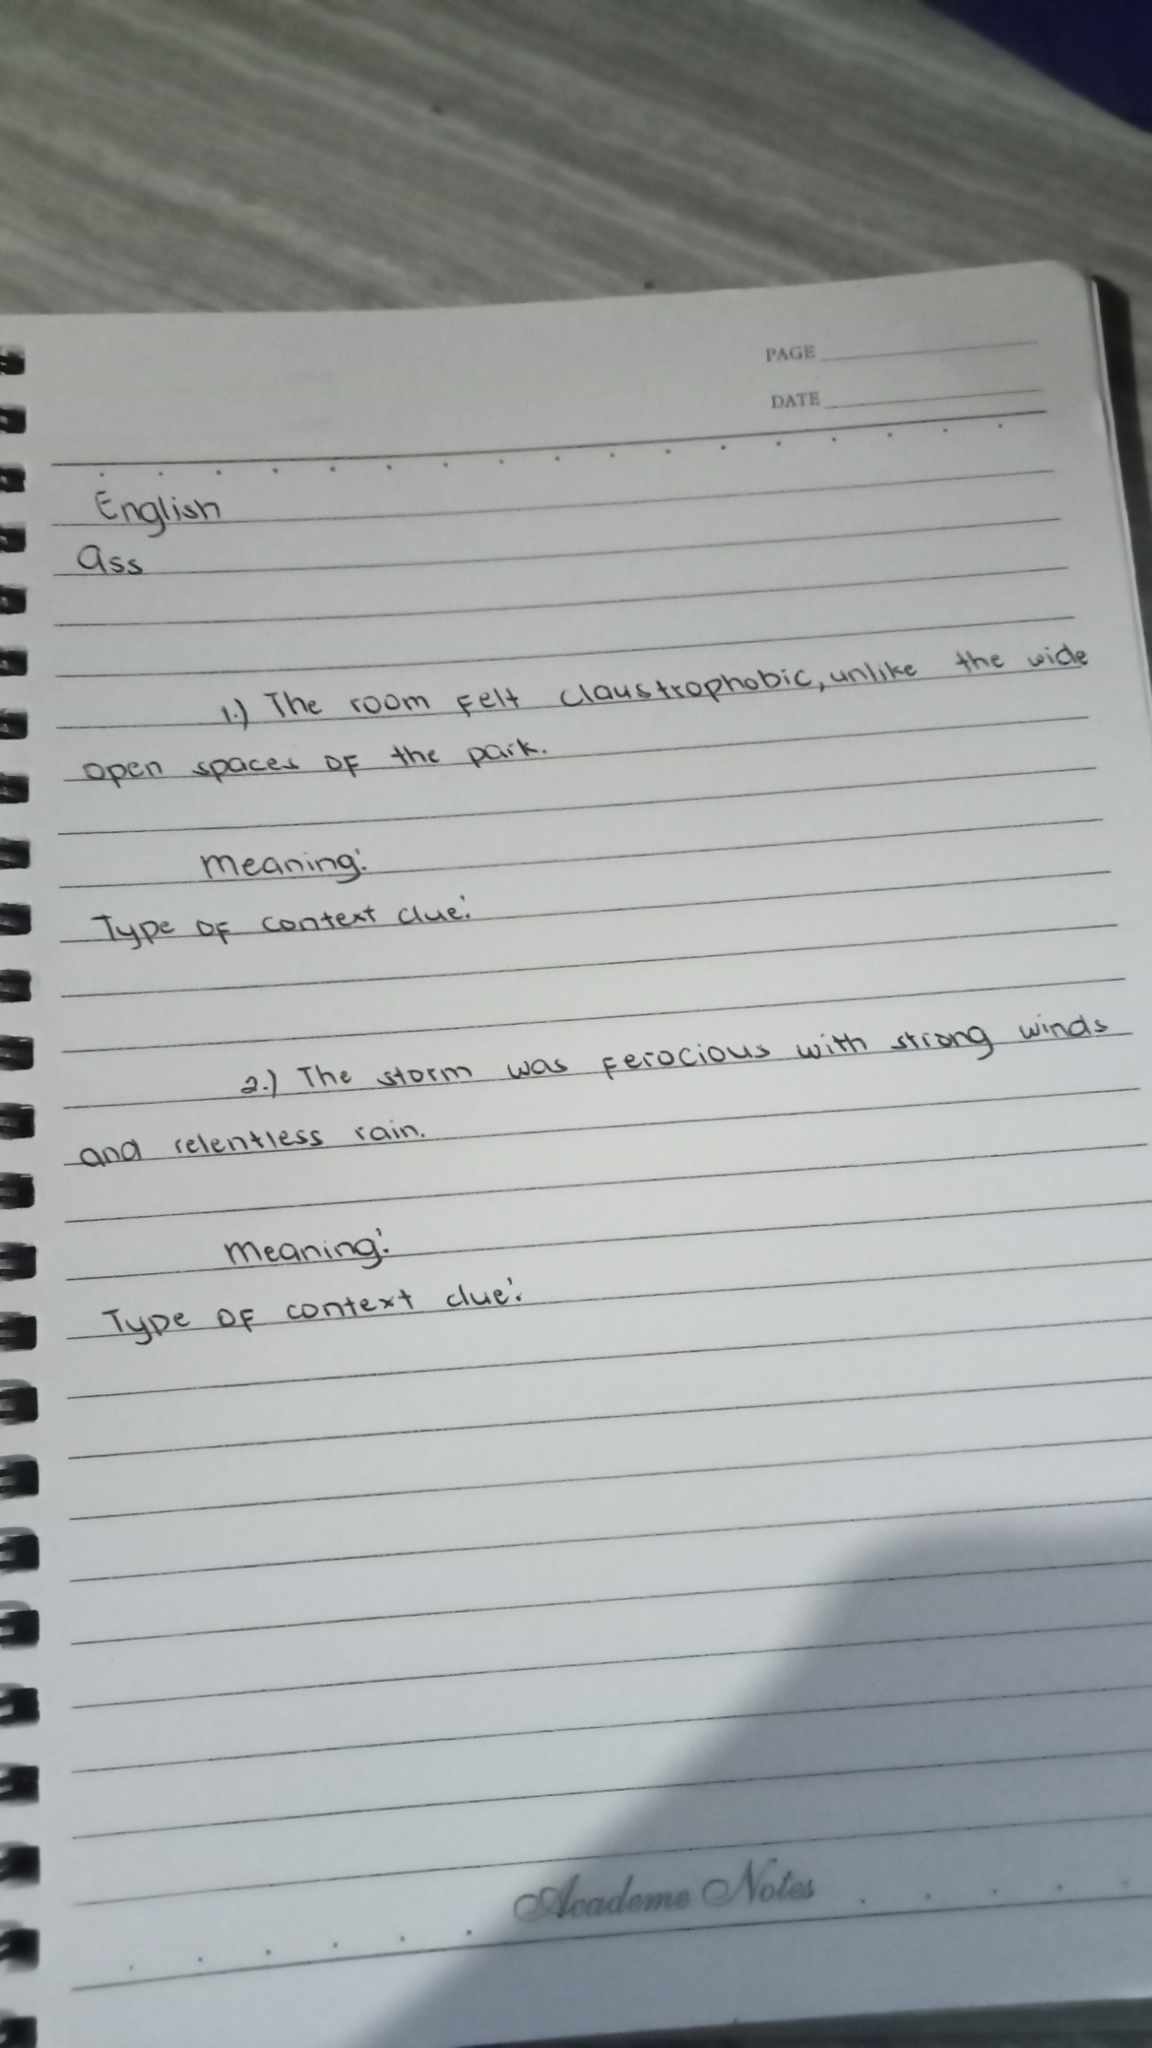 PAGE
DATE
English
Ass
1.) The room felt claustrophobic, unlike the wide
open spaces of the park.
Meaning:
Type of context clue:
2.) The storm was ferocious with strong winds
and relentless rain.
Meaning:
Type of context clue:
Academe Notes